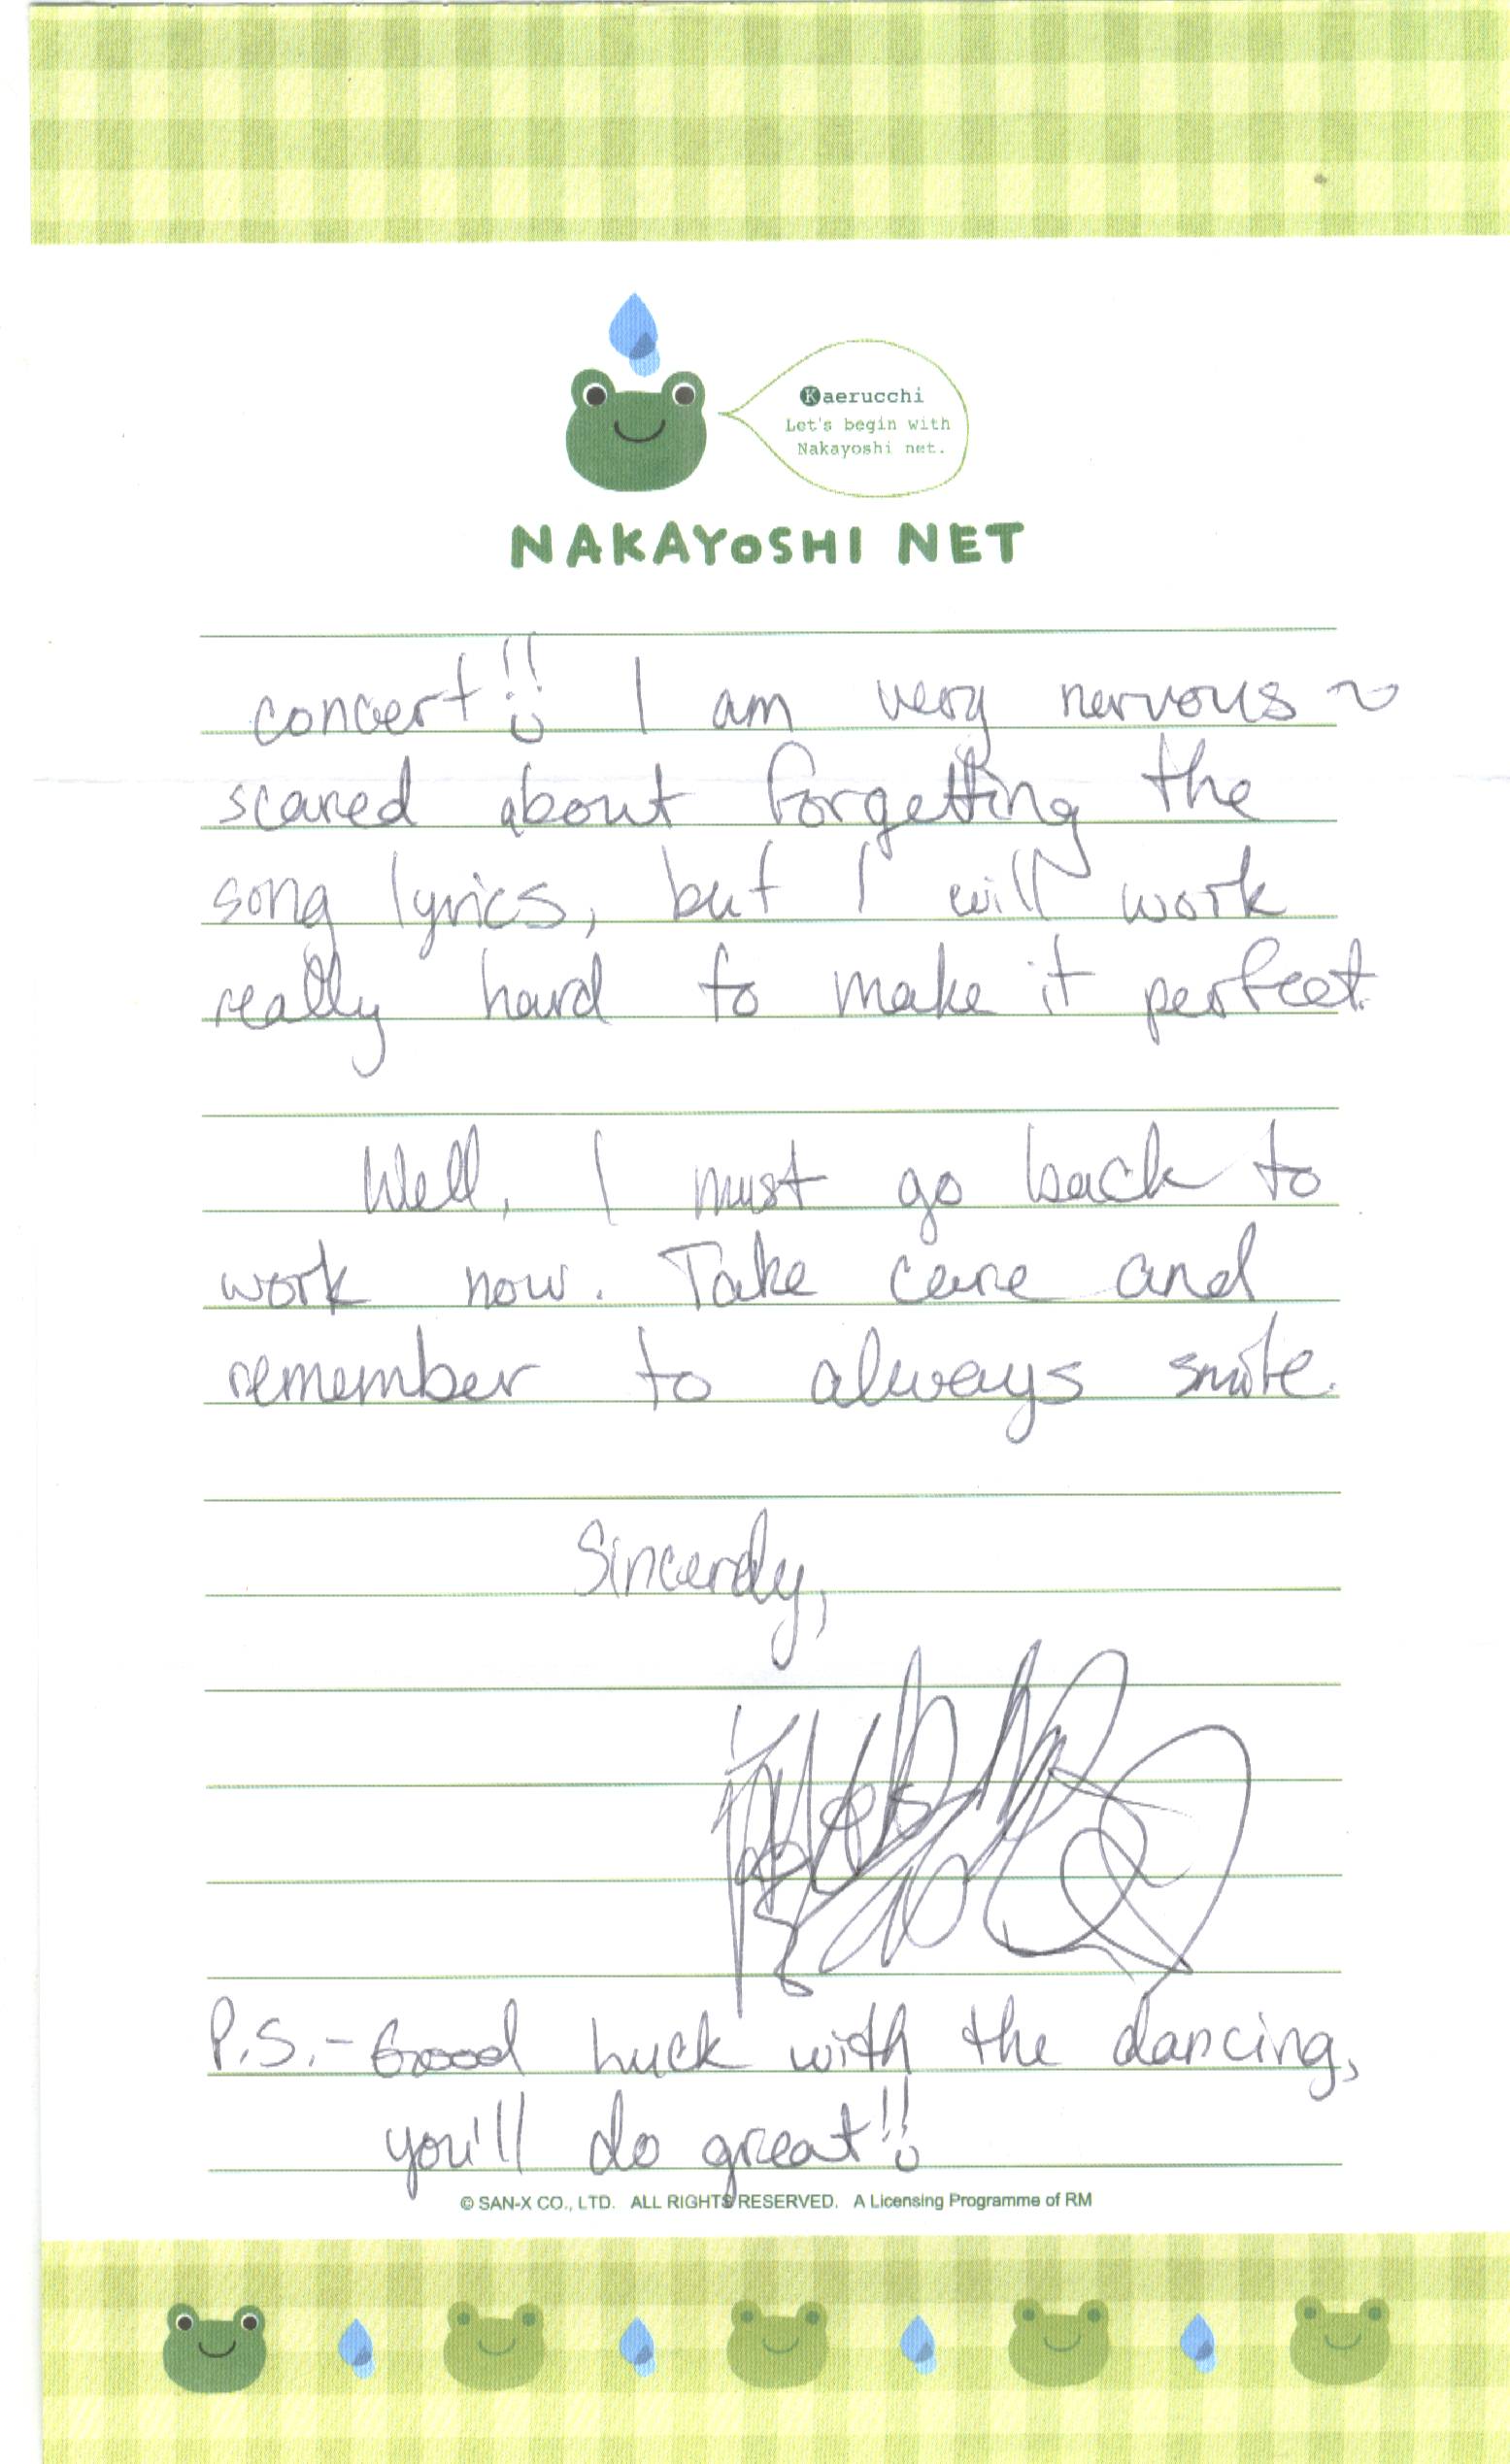 Kaerucchi
Let's begin with
Nakayoshi net.
NAKAYOSHI NET
concert!! I am very nervous ~
scared about forgetting the
song lyrics, but I will work
really hard to make it perfect.
Well, I must go back to
work now. Take care and
remember to always smile.
Sincerely,
P.S.- Good luck with the dancing,
you'll do great!!
© SAN-X CO., LTD. ALL RIGHTS RESERVED. A Licensing Programme of RM